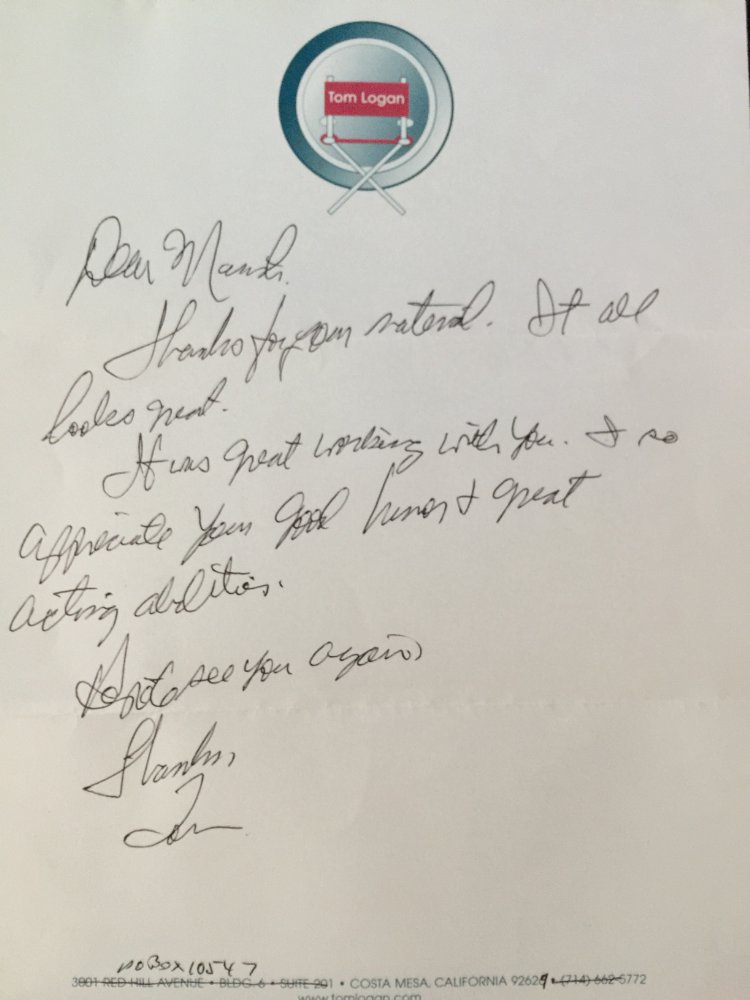 Tom Logan
Dear
Thanks for your material. It all
looks great.
It was great working with you. I so
appreciate your good humor & great
acting abilities.
Hope to see you again,
Thanks,
Tom
PO BOX 10547
3801 RED HILL AVENUE • BLDG. 6 • SUITE 201 • COSTA MESA, CALIFORNIA 92627 • (714) 662-5772
www.tomlogan.com